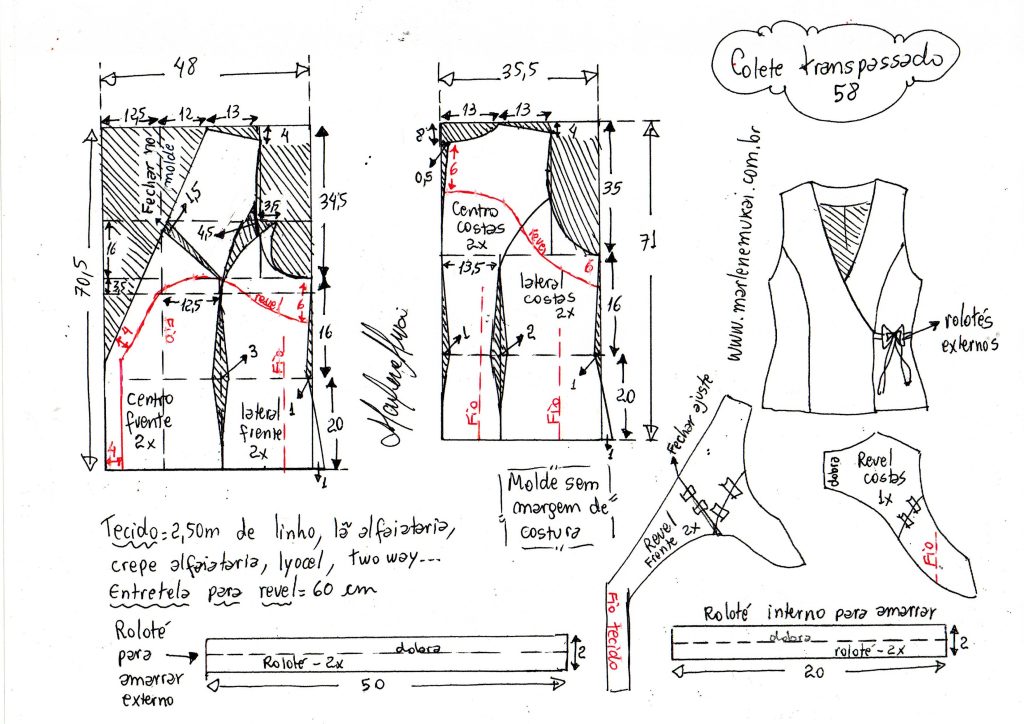 Colete transpassado
58
www.marlenemukai.com.br
48
12,5
12
13
4
Fechar no
molde
1,5
3,5
4,5
34,5
16
3,5
70,5
12,5
revel
6
4
fio
Fio
16
3
1
centro
frente
2x
lateral
frente
2x
20
4
1
35,5
13
13
8
4
0,5
6
35
Centro
costas
2x
revel
71
13,5
6
lateral
costas
2x
16
1
2
1
Fio
Fio
20
1
rolotés
externos
Molde sem
margem de
costura
Tecido=2,50m de linho, lã alfaiataria,
crepe alfaiataria, lyocel, two way...
Entretela para revel=60 cm
Fechar ajuste
Revel
Frente 2x
Fio tecido
dobra
Revel
costas
1x
Fio
Roloté
para
amarrar
externo
dobra
Roloté-2x
2
50
Roloté interno para amarrar
dobra
roloté-2x
2
20